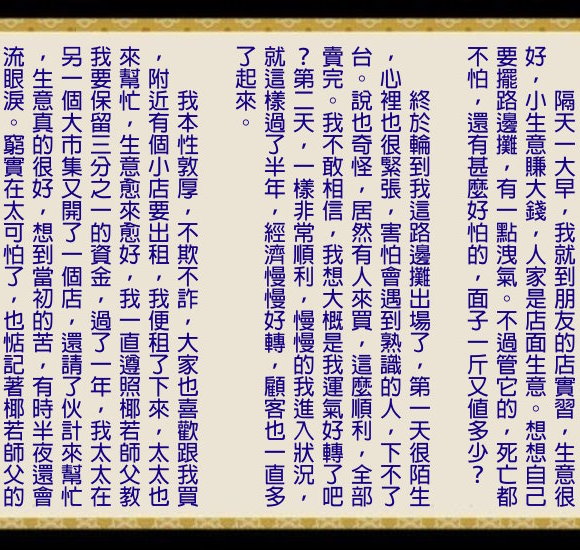 隔天一大早，我就到朋友的店實習，生意很
好，小生意賺大錢，人家是店面生意。想想自己
要擺路邊攤，有一點洩氣。不過管它的，死亡都
不怕，還有甚麼好怕的，面子一斤又値多少？
終於輪到我這路邊攤出場了，第一天很陌生
，心裡也很緊張，害怕會遇到熟識的人，下不了
台。說也奇怪，居然有人來買，這麼順利，全部
賣完。我不敢相信，我想大概是我運氣好轉了吧
？第二天，一樣非常順利，慢慢的我進入狀況，
就這樣過了半年，經濟慢慢好轉，顧客也一直多
了起來。
我本性敦厚，不欺不詐，大家也喜歡跟我買
，附近有個小店要出租，我便租了下來，太太也
來幫忙，生意愈來愈好，我一直遵照椰若師父教
我要保留三分之一的資金，過了一年，我太太在
另一個大市集又開了一個店，還請了伙計來幫忙
，生意真的很好，想到當初的苦，有時半夜還會
流眼淚。窮實在太可怕了，也惦記著椰若師父的